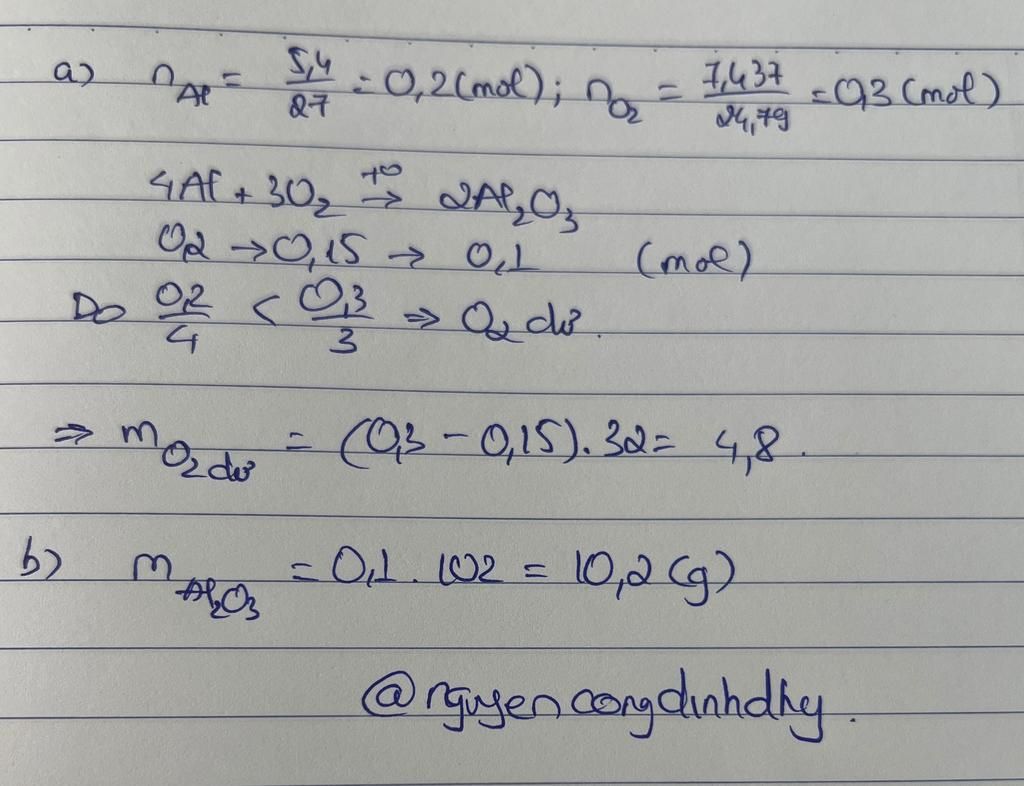 a) n_Al = 5,4/27 = 0,2 (mol); n_O2 = 7,437/24,79 = 0,3 (mol)
4Al + 3O2 t° → 2Al2O3
0,2 → 0,15 → 0,1 (mol)
Do 0,2/4 < 0,3/3 ⇒ O2 dư.
⇒ m_O2 dư = (0,3 - 0,15). 32 = 4,8.
b) m_Al2O3 = 0,1. 102 = 10,2 (g)
@nguyencongdinhdhy.